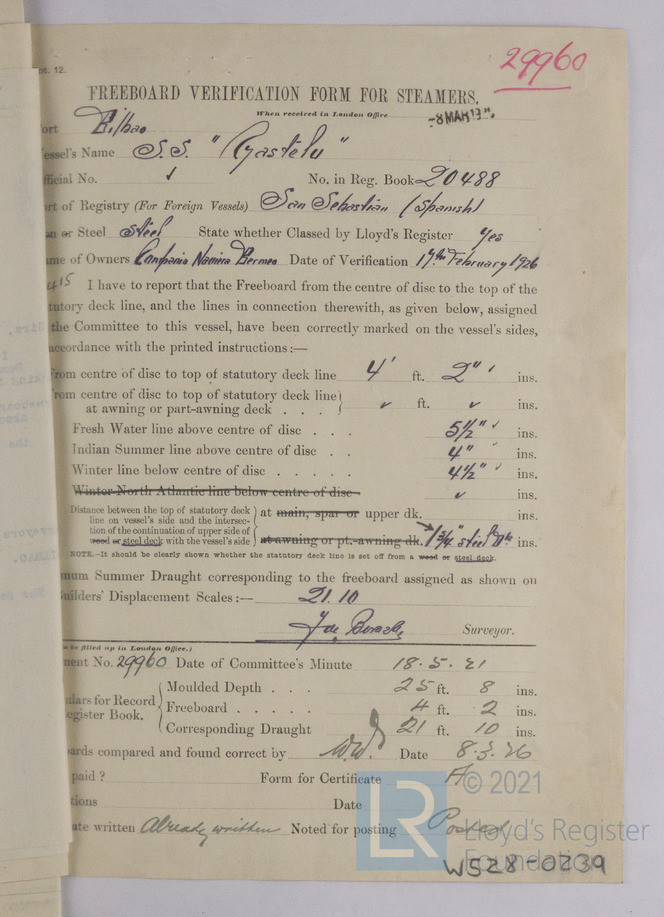 ot. 12.
29960
FREEBOARD VERIFICATION FORM FOR STEAMERS.
When received in London Office
-8 MAR
ort Bilbao
essel's Name S.S. "Gaztelu"
fficial No. No. in Reg. Book 20488
rt of Registry (For Foreign Vessels) San Sebastian (Spanish)
n or Steel Steel State whether Classed by Lloyd's Register Yes
me of Owners Compania Naviera Bermeo Date of Verification 17th February 1926
I have to report that the Freeboard from the centre of disc to the top of the
tutory deck line, and the lines in connection therewith, as given below, assigned
the Committee to this vessel, have been correctly marked on the vessel's sides,
accordance with the printed instructions:—
From centre of disc to top of statutory deck line 4' ft. 2" ins.
From centre of disc to top of statutory deck line
at awning or part-awning deck . . . ft. ins.
Fresh Water line above centre of disc . . . 5½" ins.
Indian Summer line above centre of disc . . 4" ins.
Winter line below centre of disc . . . . . 4½" ins.
Winter North Atlantic line below centre of disc ins.
Distance between the top of statutory deck
line on vessel's side and the intersec-
tion of the continuation of upper side of
wood or steel deck with the vessel's side
at main, spar or upper dk. ins.
at awning or pt.-awning dk. 1¾" steel Dk ins.
NOTE.—It should be clearly shown whether the statutory deck line is set off from a wood or steel deck.
mum Summer Draught corresponding to the freeboard assigned as shown on
uilders' Displacement Scales:— 21.10
Surveyor.
be filled up in London Office.)
ment No. 29960 Date of Committee's Minute 18.5.21
ulars for Record
egister Book.
Moulded Depth . . . 25 ft. 8 ins.
Freeboard . . . . . 4 ft. 2 ins.
Corresponding Draught 21 ft. 10 ins.
ards compared and found correct by W.W. Date 8.3.26
paid ? Form for Certificate A
tions Date
ate written Already written Noted for posting Posted
LR © 2021
Lloyd's Register
Foundation
W528-0239